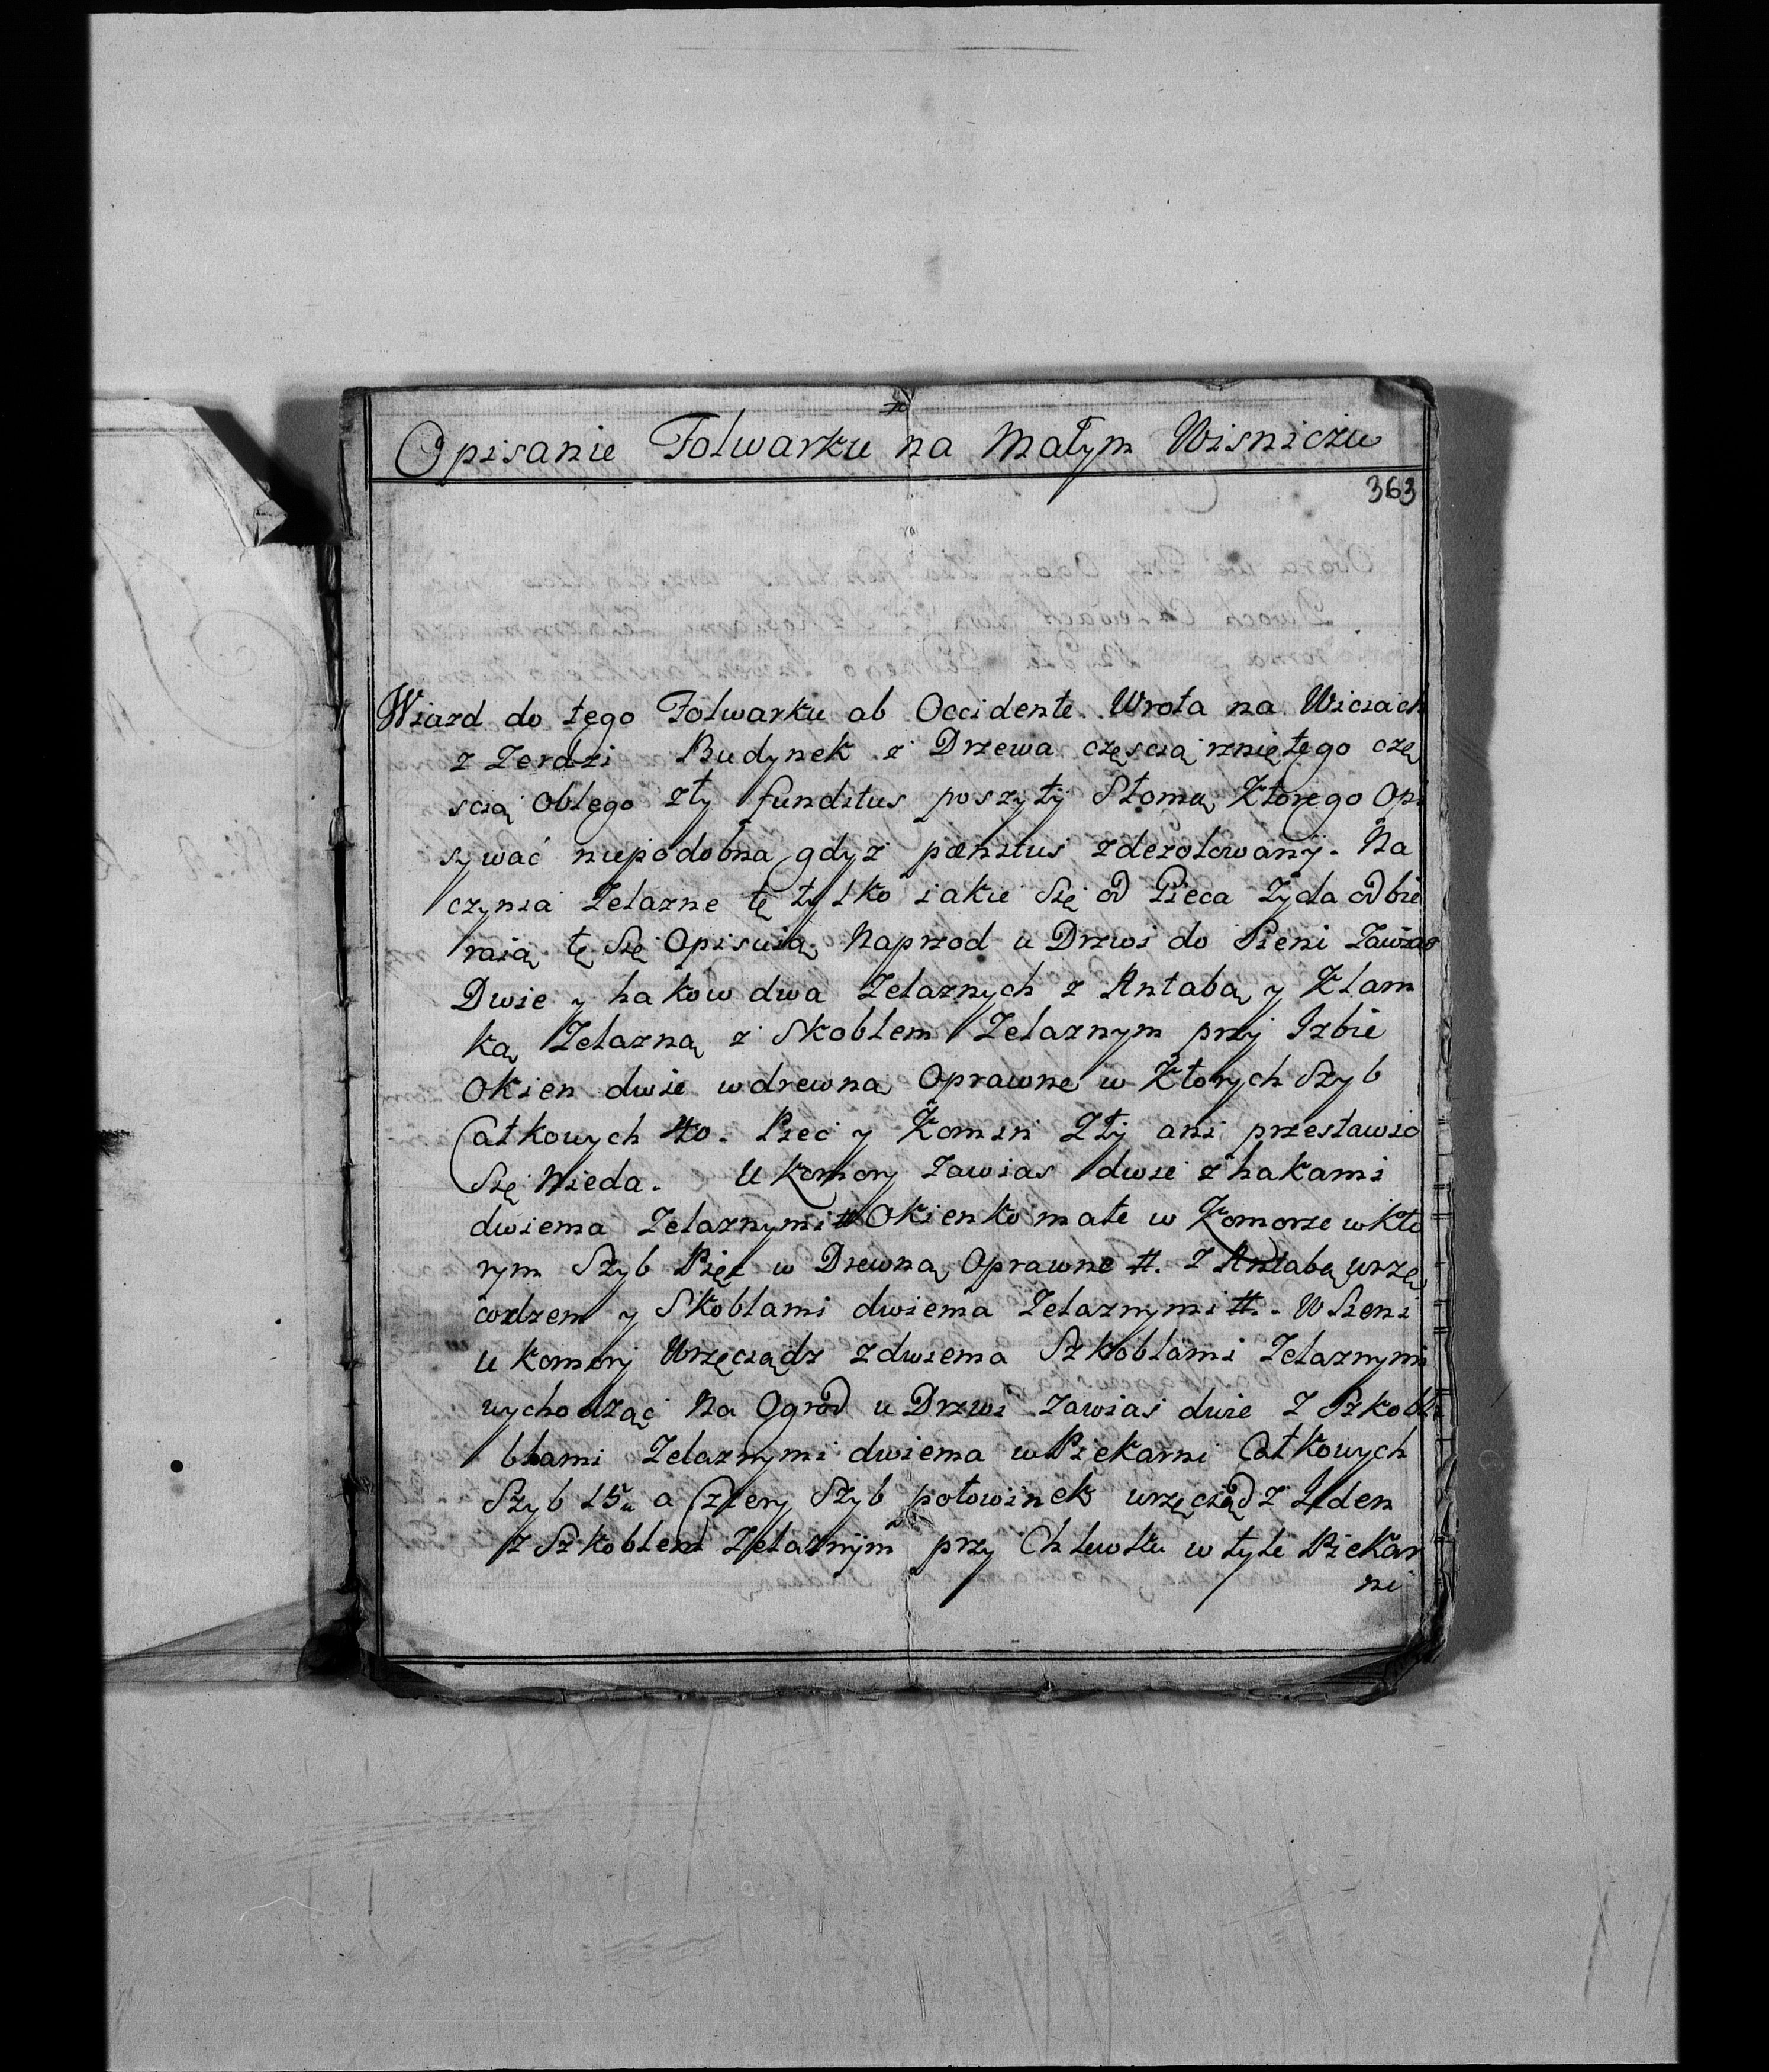 Opisanie Folwarku na Małym Wisniczu
363
Wiazd do tego Folwarku ab Occidente. Wrota na Wiciach
z Zerdzi Budynek z Drzewa częscią rzniętego czę
scią Oblego zły funditus poszyty Słomą Ktorego Opi
sywać niepodobna gdyz pænitus zdezolowany. Na
czynia Zelazne tę tylko iakie Się od Pieca Zyda odbie
raią tę Się Opisuią. Naprzod u Drzwi do Sieni Zawias
Dwie y hakow dwa Zelaznych z Antabą y Klam
ką Zelazną z Skoblem Zelaznym przy Izbie
Okien dwie wdrewna Oprawne w Ktorych Szyb
Całkowych 40. Piec y Komin Zły ani przestawic
Się Nieda. U Komory zawias dwie z hakami
dwiema Zelaznymi # Okienko małe w Komorze wKto
rym Szyb Pięc w Drewną Oprawne #. Z Antabą wrzę
codzem y Skoblami dwiema Zelaznymi #. W Sieni
u komory Wrzęciądz zdwiema Szkoblami Zelaznymi
wychodząc Na Ogrod u Drzwi zawias dwie Z Szkobl
blami Zelaznymi dwiema wPiekarni Całkowych
Szyb 15. a Cztery Szyb połowinek wrzęciądz Ieden
z Szkoblem Zelaznym przy Chlewku w tyle Piekar
ni